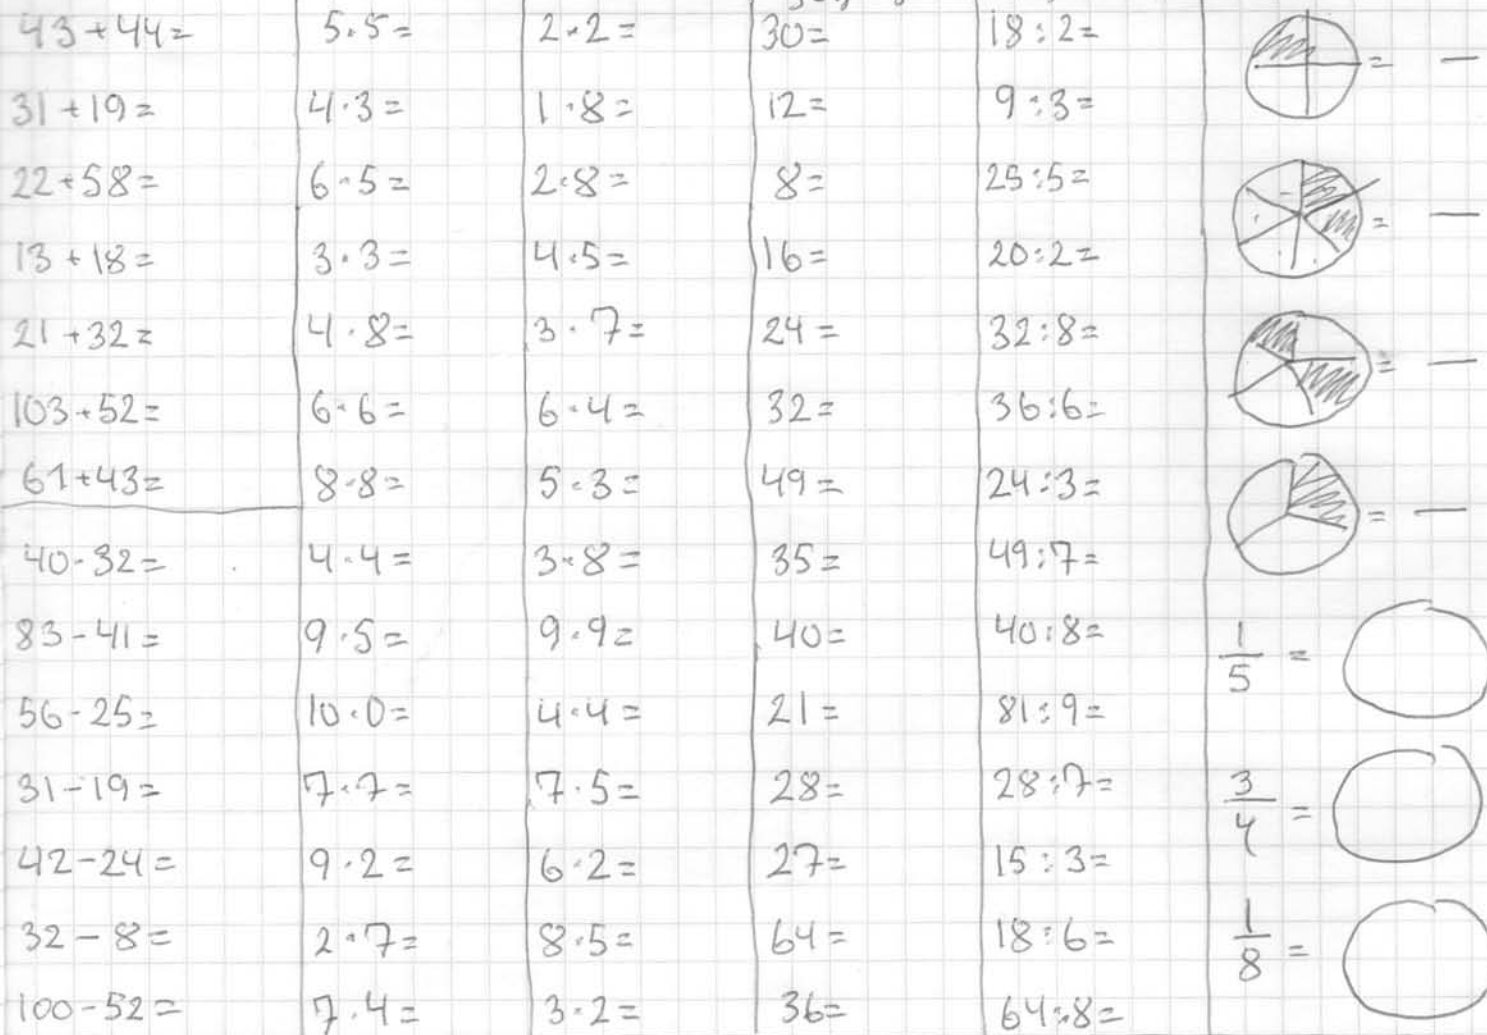 43+44=
31+19=
22+58=
13+18=
21+32=
103+52=
61+43=
40-32=
83-41=
56-25=
31-19=
42-24=
32-8=
100-52=
5·5=
4·3=
6·5=
3·3=
4·8=
6·6=
8·8=
4·4=
9·5=
10·0=
7·7=
9·2=
2·7=
7·4=
2·2=
1·8=
2·8=
4·5=
3·7=
6·4=
5·3=
3·8=
9·9=
4·4=
7·5=
6·2=
8·5=
3·2=
30=
12=
8=
16=
24=
32=
49=
35=
40=
21=
28=
27=
64=
36=
18:2=
9:3=
25:5=
20:2=
32:8=
36:6=
24:3=
49:7=
40:8=
81:9=
28:7=
15:3=
18:6=
64:8=
= —
= —
= —
= —
1/5 =
3/4 =
1/8 =